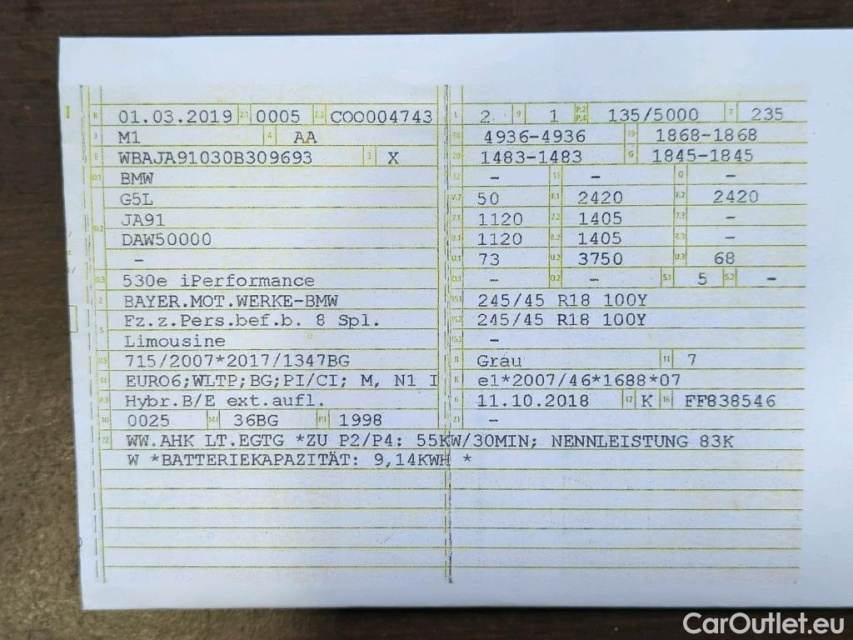 B 01.03.2019 2.1 0005 2.2 COO004743
J M1 4 AA
E WBAJA91030B309693 3 X
D.1 BMW
G5L
D.2 JA91
DAW50000
–
D.3 530e iPerformance
2 BAYER.MOT.WERKE-BMW
5 Fz.z.Pers.bef.b. 8 Spl.
Limousine
V.9 715/2007*2017/1347BG
14 EURO6;WLTP;BG;PI/CI; M, N1 I
P.3 Hybr.B/E ext.aufl.
10 0025 14.1 36BG P.1 1998
L 2 9 1 P.2 P.4 135/5000 T 235
18 4936-4936 19 1868-1868
20 1483-1483 G 1845-1845
12 – 13 – Q –
V.7 50 F.1 2420 F.2 2420
7.1 1120 7.2 1405 7.3 –
8.1 1120 8.2 1405 8.3 –
U.1 73 U.2 3750 U.3 68
O.1 – O.2 – S.1 5 S.2 –
15.1 245/45 R18 100Y
15.2 245/45 R18 100Y
15.3 –
R Grau 11 7
K e1*2007/46*1688*07
6 11.10.2018 17 K 16 FF838546
21 –
22 WW.AHK LT.EGTG *ZU P2/P4: 55KW/30MIN; NENNLEISTUNG 83K
W *BATTERIEKAPAZITÄT: 9,14KWH *
CarOutlet.eu